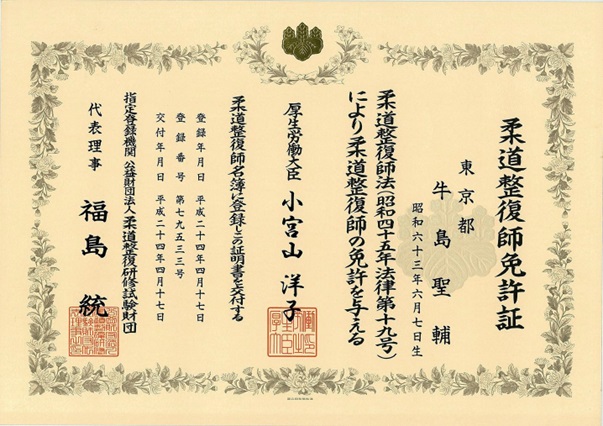 柔道整復師免許証
東京都
牛島聖輔
昭和六十三年六月七日生
柔道整復師法(昭和四十五年法律第十九号)
により柔道整復師の免許を与える
厚生労働大臣 小宮山洋子
柔道整復師名簿に登録しこの証明書を交付する
登録年月日 平成二十四年四月十七日
登録番号 第七九五三三号
交付年月日 平成二十四年四月十七日
指定登録機関 公益財団法人柔道整復研修試験財団
代表理事 福島統